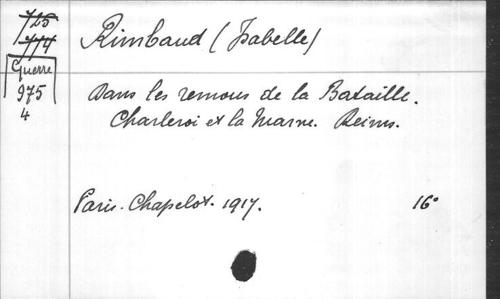 725
774
Guerre
975
4
Rimbaud (Isabelle)
Dans les remous de la Bataille.
Charleroi et la Marne. Reims.
Paris. Chapelot. 1917. 16°